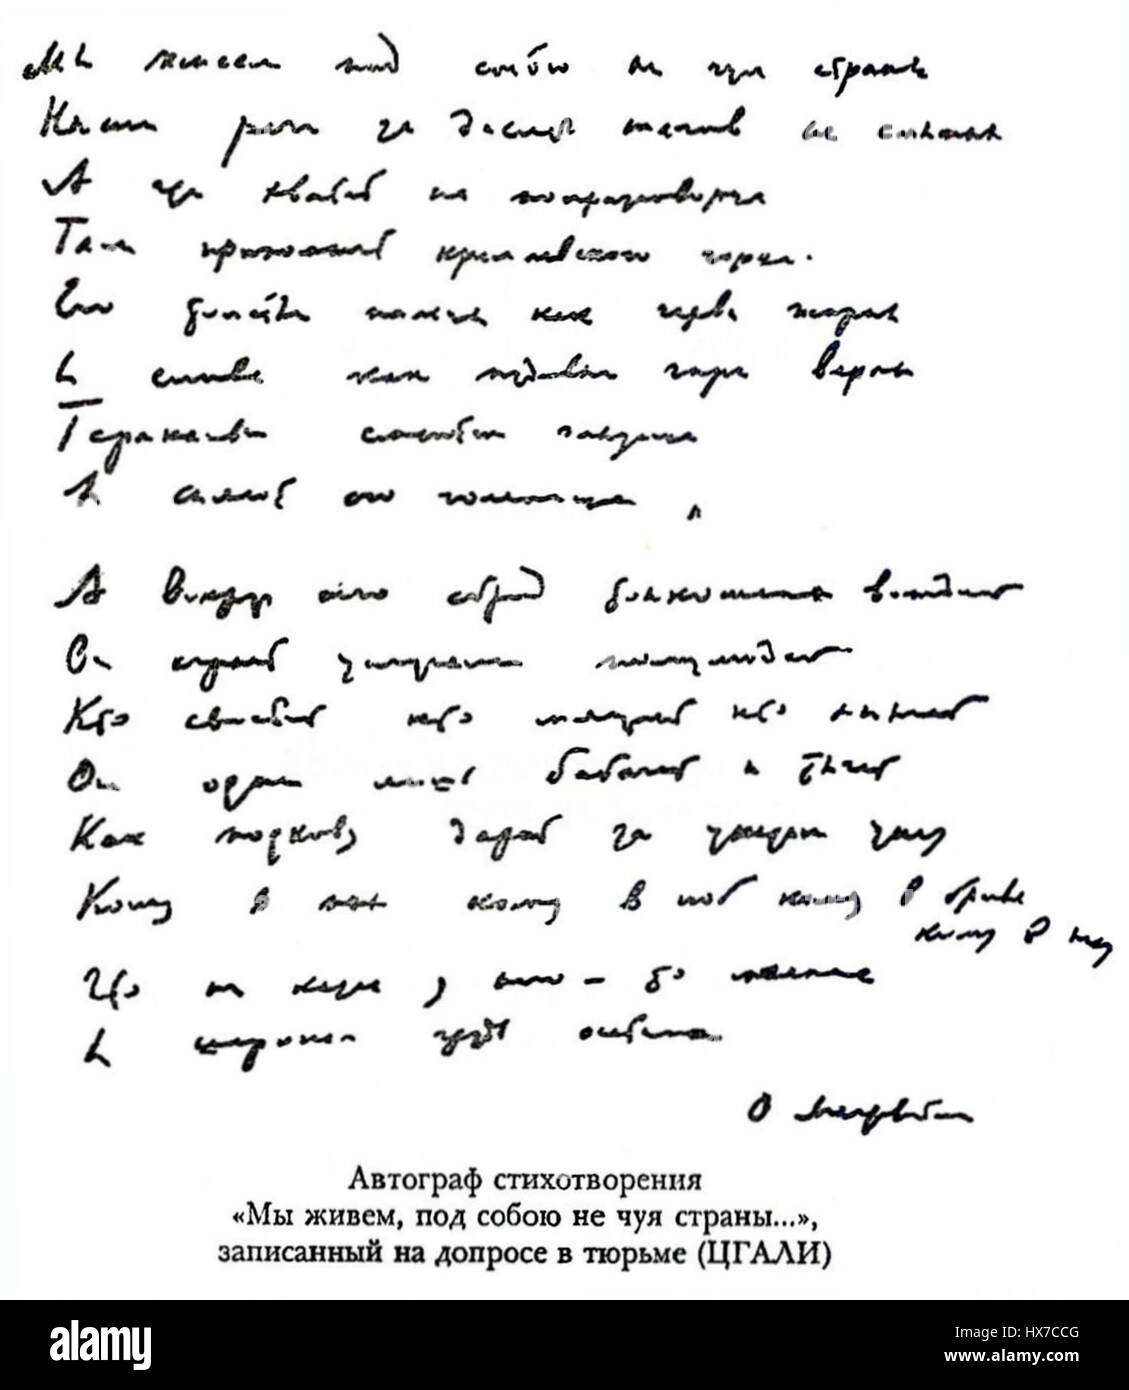 Мы живем под собою не чуя страны
Наши речи за десять шагов не слышны
А где хватит на полразговорца
Там припомнят кремлевского горца.
Его толстые пальцы как черви жирны
И слова как пудовые гири верны
Тараканьи смеются глазища
И сияют его голенища
А вокруг его сброд тонкошеих вождей
Он играет услугами полулюдей
Кто свистит кто мяучит кто хнычет
Он один лишь бабачит и тычет
Как подкову дарит за указом указ
Кому в пах кому в лоб кому в бровь
кому в глаз
Что ни казнь у него – то малина
И широкая грудь осетина
О Мандельштам
Автограф стихотворения
«Мы живем, под собою не чуя страны...»,
записанный на допросе в тюрьме (ЦГАЛИ)
alamy
Image ID: HX7CCG
www.alamy.com